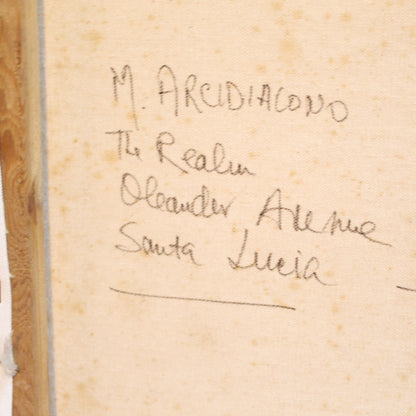 M. ARCIDIACONO
The Realm
Oleander Avenue
Santa Lucia